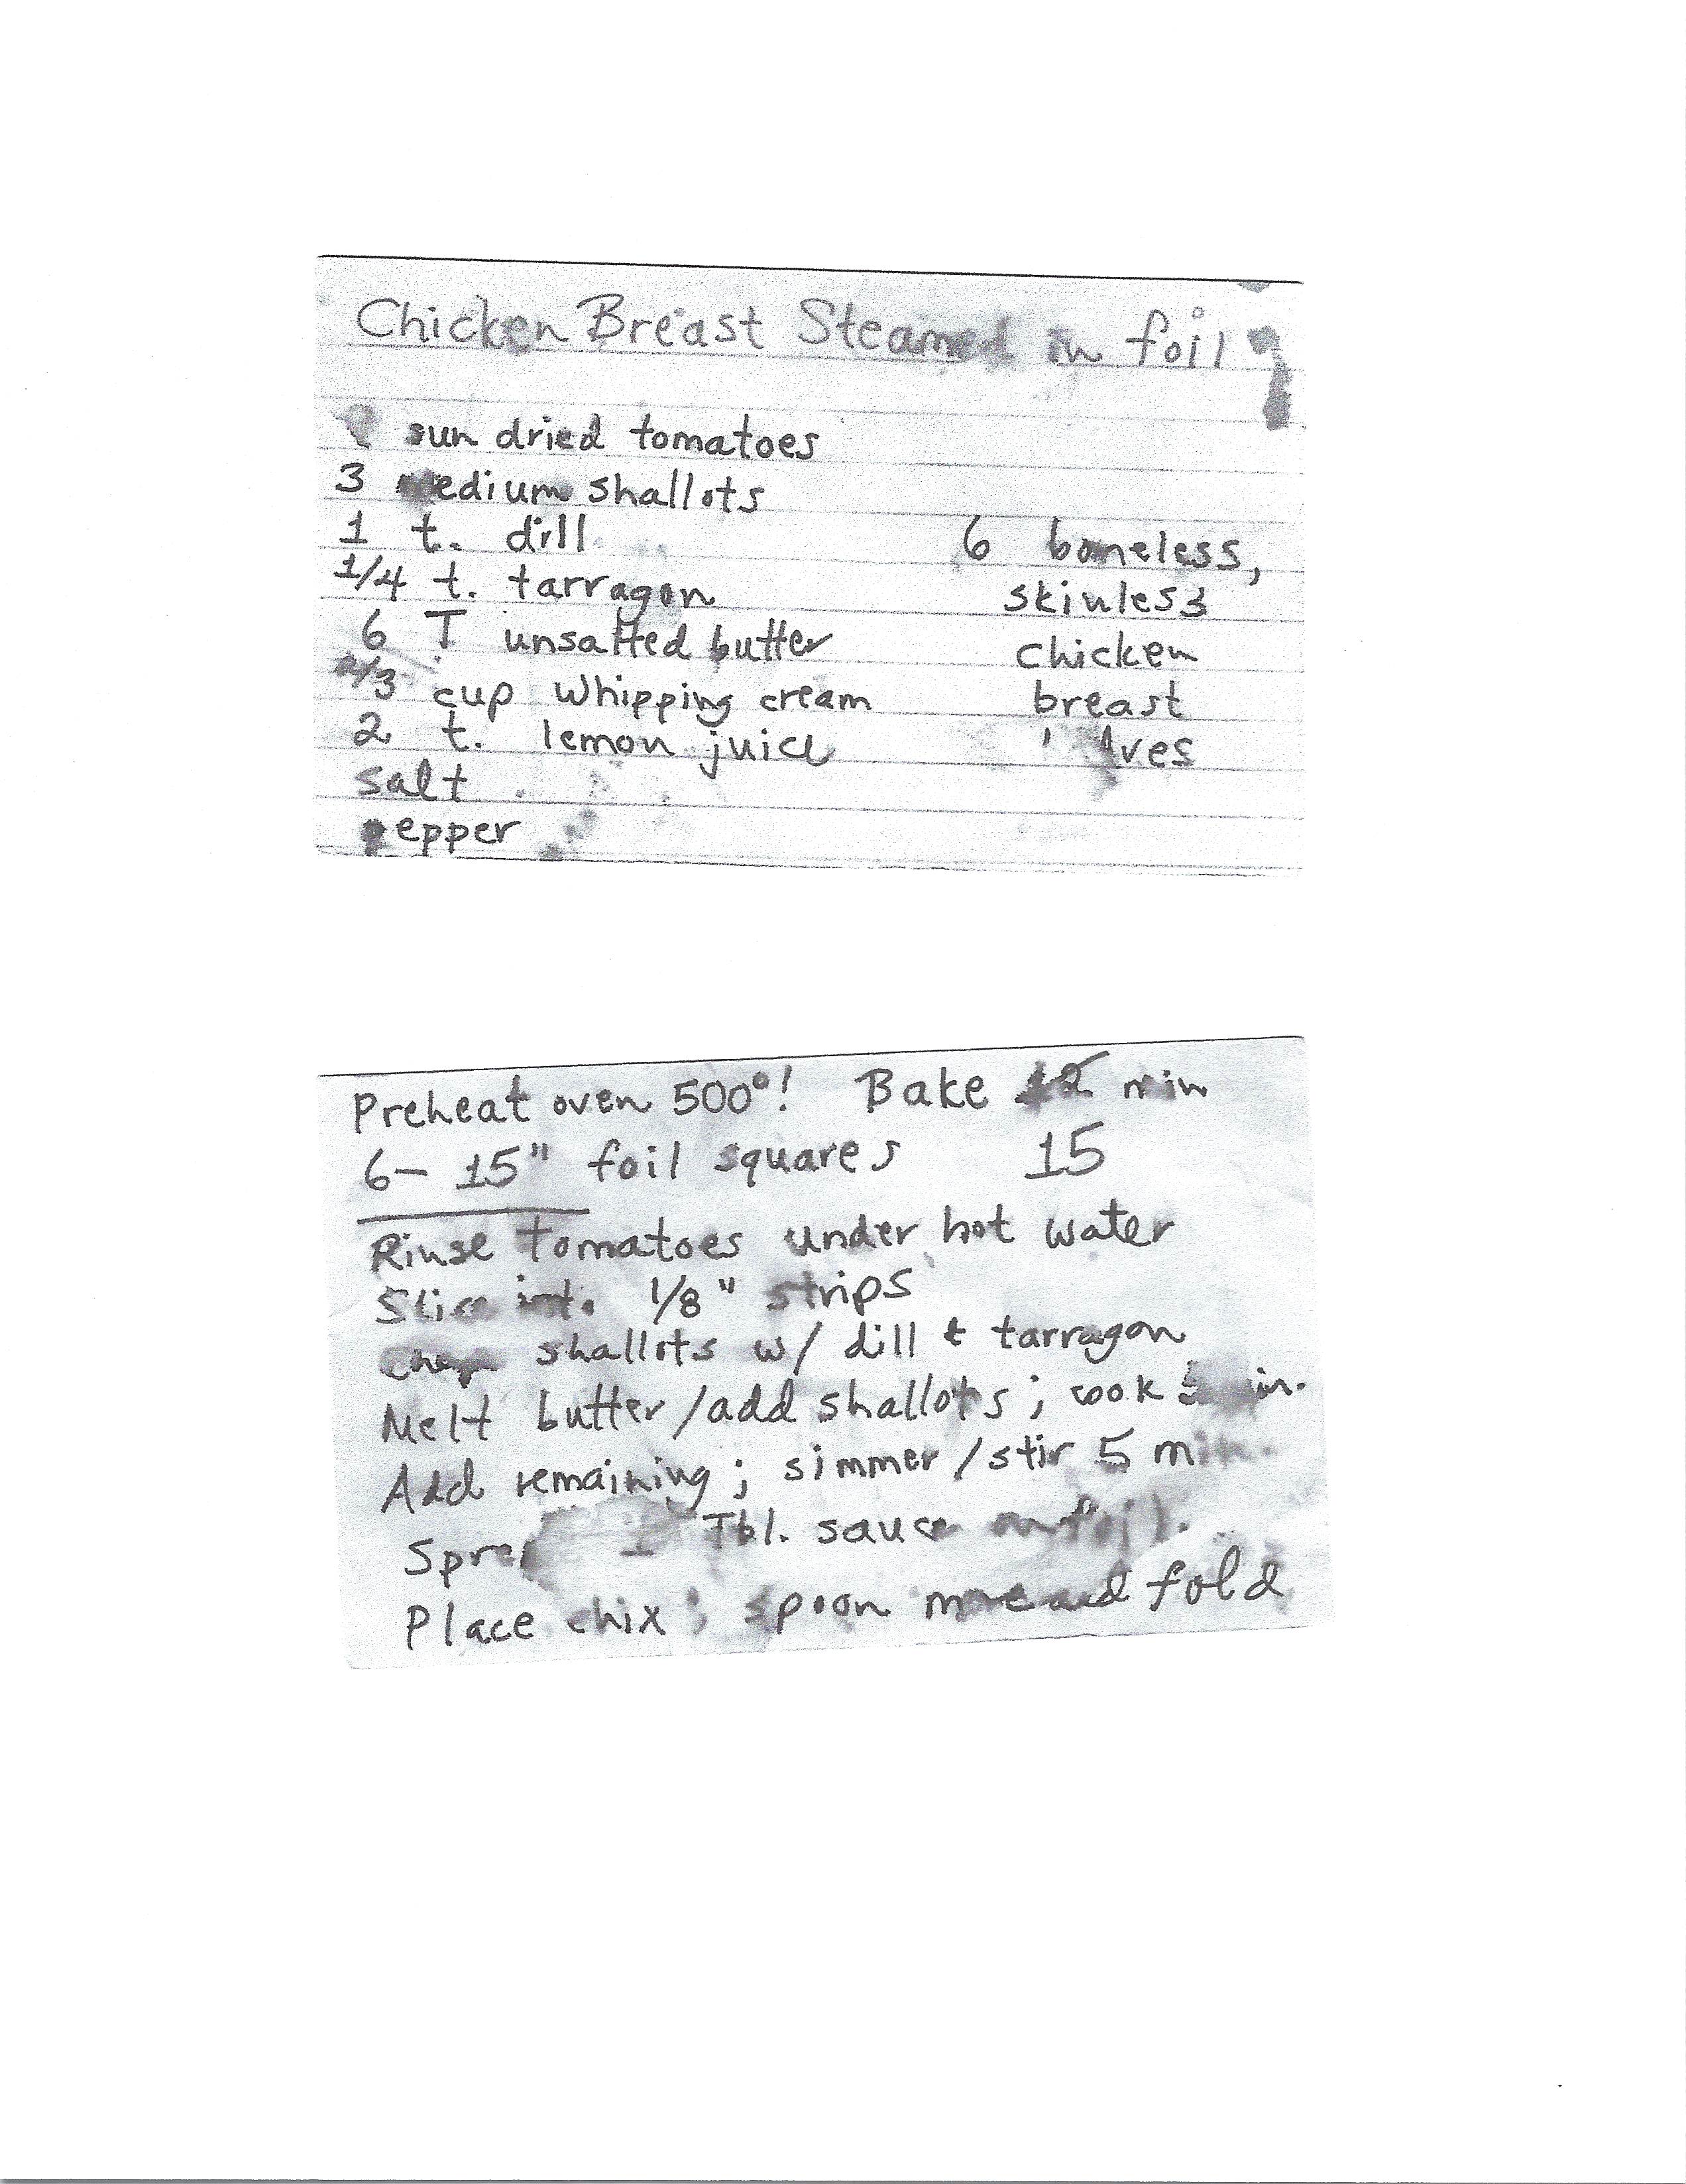 Chicken Breast Steamed in foil
sun dried tomatoes
3 medium shallots
1 t. dill
1/4 t. tarragon
6 T unsalted butter
2/3 cup whipping cream
2 t. lemon juice
salt
pepper
6 boneless,
skinless
chicken
breast
Preheat oven 500°! Bake 12 min
6- 15" foil squares 15
Rinse tomatoes under hot water
Slice into 1/8" strips
shallots w/ dill & tarragon
Melt butter/add shallots; cook 5 min.
Add remaining; simmer/stir 5 min.
Tbl. sauce on foil.
Place chix; spoon more and fold